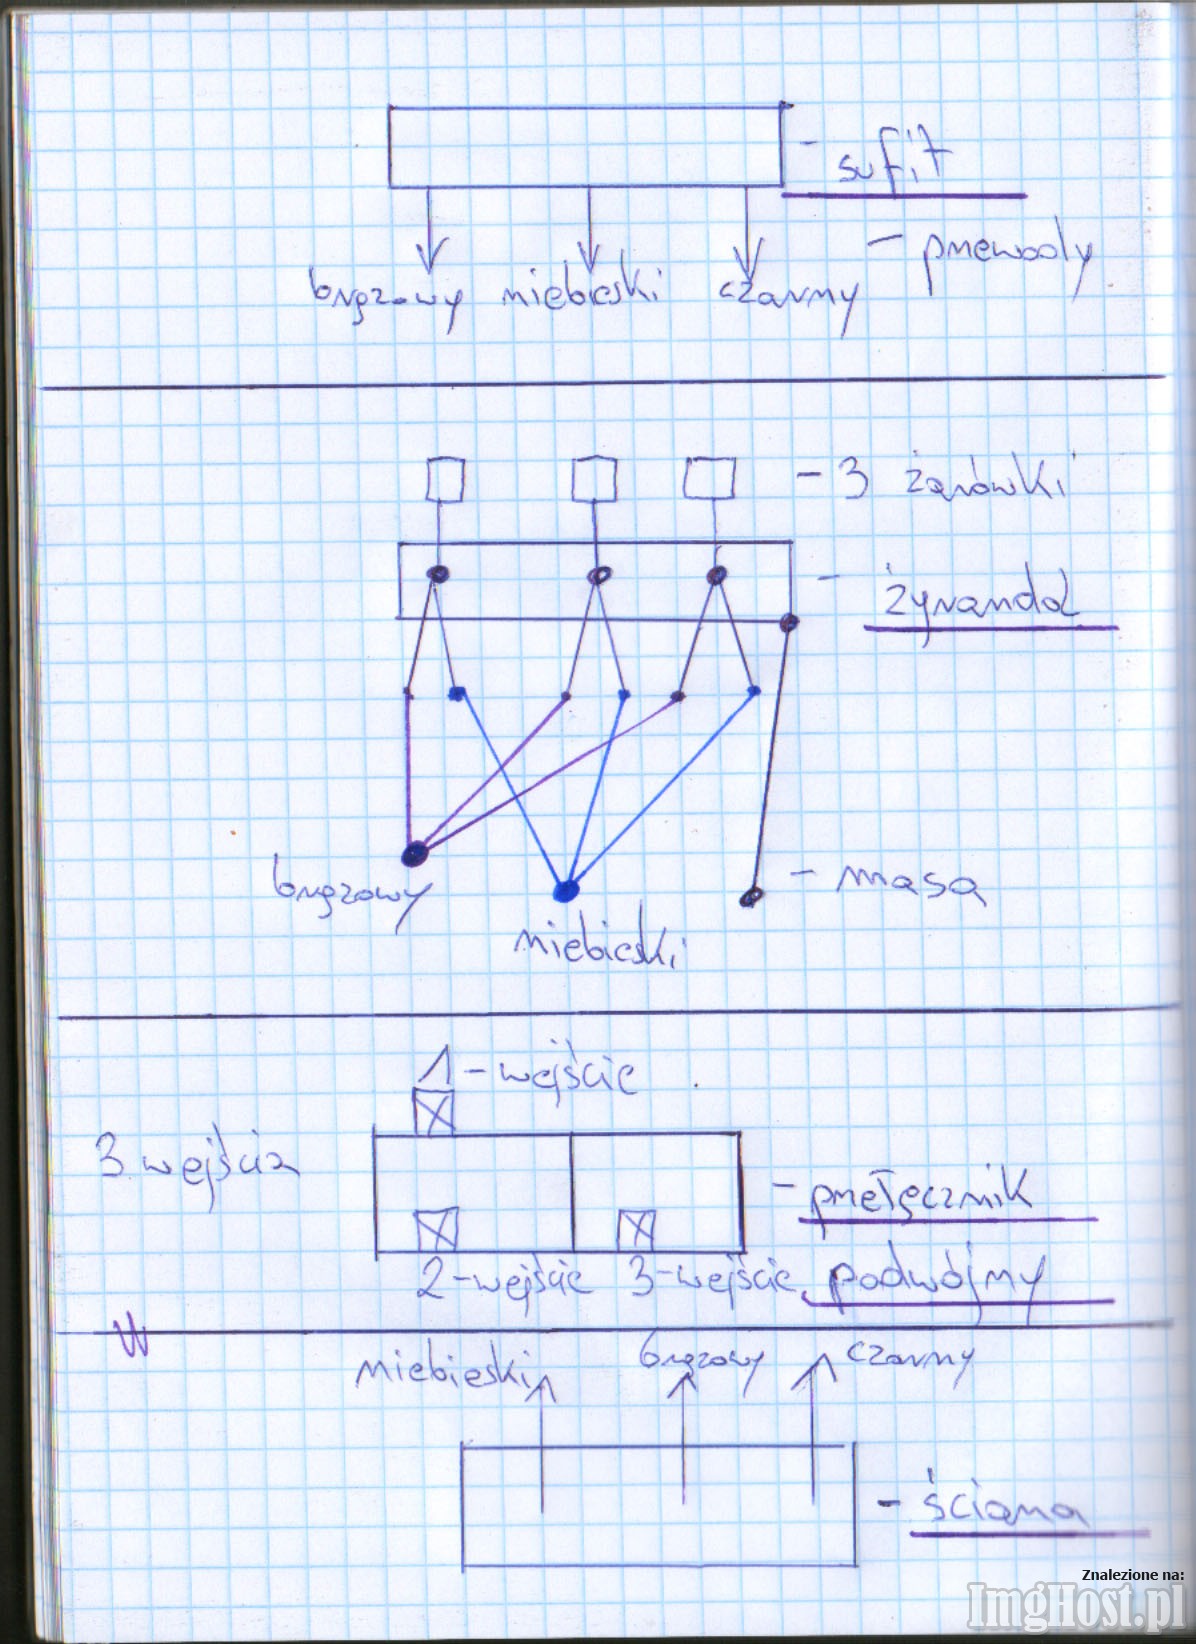 - sufit
- przewody
brązowy niebieski czarny
- 3 żarówki
- żyrandol
brązowy
- masa
niebieski
1 - wejście
3 wejścia
- przełącznik
2 - wejście 3 - wejście podwójny
niebieski brązowy czarny
- ściana
Znalezione na:
ImgHost.pl